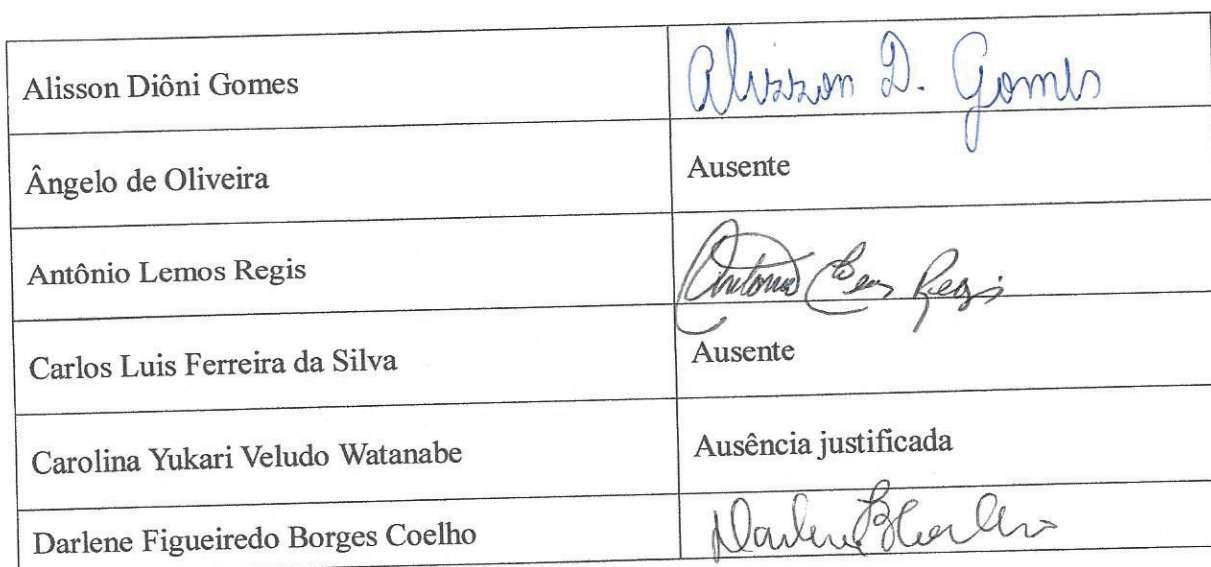 Alisson Diôni Gomes
Alisson D. Gomes
Ângelo de Oliveira
Ausente
Antônio Lemos Regis
Antonio Lemos Regis
Carlos Luis Ferreira da Silva
Ausente
Carolina Yukari Veludo Watanabe
Ausência justificada
Darlene Figueiredo Borges Coelho
Darlene B Coelho